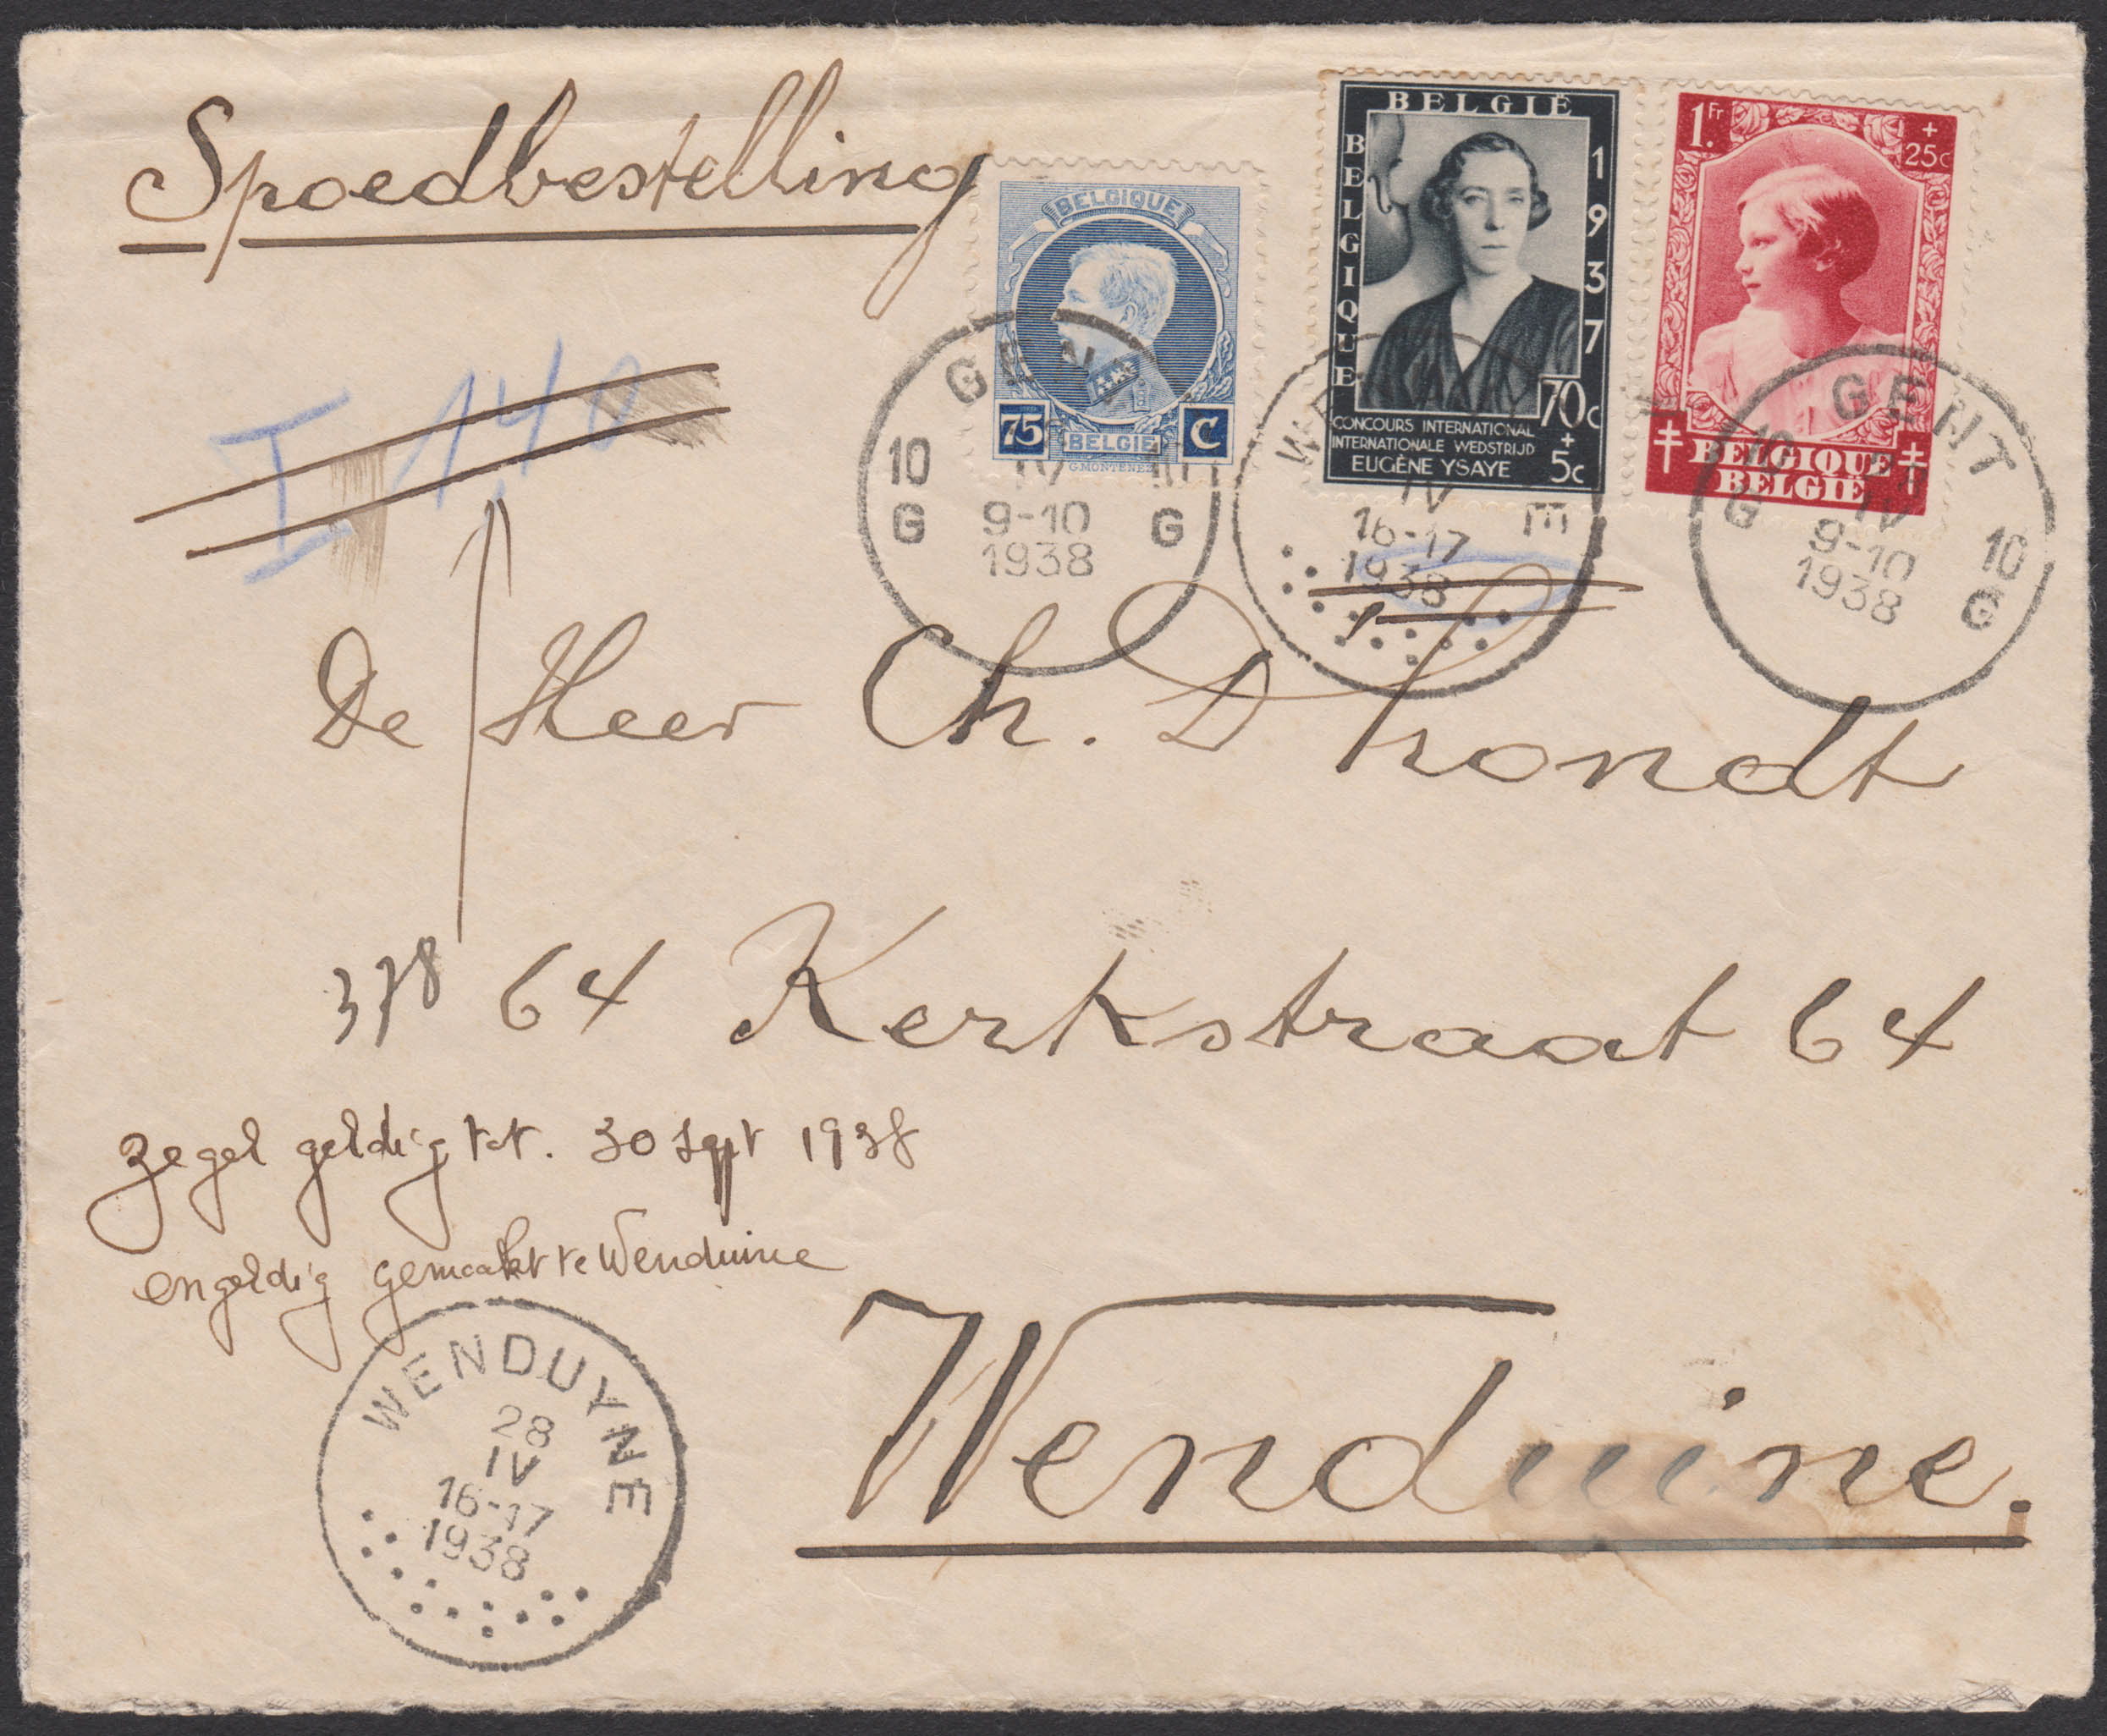 Spoedbestelling
BELGIQUE
75 C
BELGIË
G.MONTENEZ
BELGIË
BELGIQUE
1937
70c
+
5c
CONCOURS INTERNATIONAL
INTERNATIONALE WEDSTRIJD
EUGÈNE YSAYE
1Fr.
+
25c
BELGIQUE
BELGIË
T 1,40
GENT
10 10
G G
IV
9-10
1938
IV
16-17
1938
E
GENT
10 10
G G
IV
9-10
1938
De Heer Ch. D'hondt
378 64 Kerkstraat 64
Zegel geldig tot. 30 sept 1938
ongeldig gemaakt te Wenduine
Wenduine.
WENDUYNE
28
IV
16-17
1938